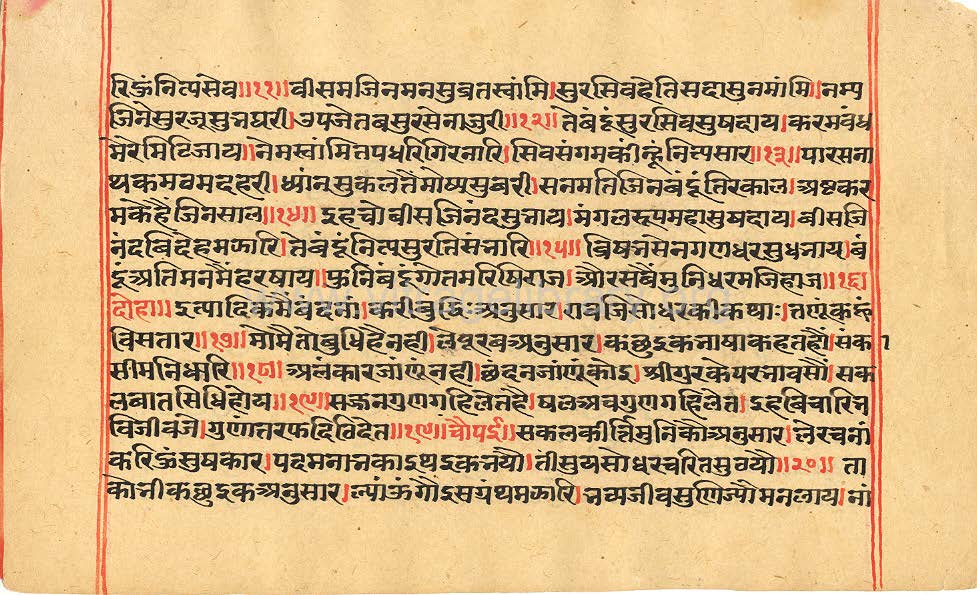 रिऊं नित्य सेव॥११॥ वीसम जिन मनसुव्रत स्वांमि। सुर सिव दै तिस दासु नमांमि। नम्य
जिनेसुर जसुज्ञघरी। उपजे तब सुरसेना जुरी॥१२॥ ते बंदूं सुर सिव सुषदाय। करम बंध
मेरे मिटि जाय॥ नेम स्वांमि तप धरि गिरनारि। सिव संगम कीन्हूं नित्य सार॥१३॥ पारसना
थ कमठ मद हरी। ध्यांन सुकल तैं मोष्य सु बरी। सनमति जिन बंदूं तिरकाल। अष्ट कर
म कहै जिन साल॥१४॥ इह चोबीस जिनंद सुभाय। मंगल रूप महा सुषदाय। बीस जि
नंद बिदेह मझारि। ते बंदूं नित्य सुरति संभारि॥१५॥ ब्रिषभसेन गणधर सुध भाय। बं
दूं अति मन मैं हरषाय। फुनि बंदूं गोतम रिषिराज। और सबैं मुनि धरम जिहाज॥१६॥
दोहा॥ इत्यादिक मैं बंदना। करी बुद्धि अनुसार। गरब जिसोधर की कथाः। तणूं कछू
विसतार॥१७॥ मो मैं तो बुधि है नही। ले पूरब अनुसार। कछु इक भाषा कहत हौं। सक
सी मनि धारि॥१८॥ अलंकार जांणूं नही। छंद न जांणूं कोइ। श्री गुर के परभाव सौं। सक
ल बात सिधि होय॥१९॥ सज्जन गुण गहि लेत है। षल अवगुण गहि लेत। इह बिचारि भ
वि जीव जे। गुणां तरफ दिठि देत॥१९॥ चौपई॥ सकलकीर्त्ति मुनि कौ अनुसार। ले रचनां
करिऊं सुषकार। पदमनाभ काइथ इक भयौ। ती सु यसोधर चरित सु ठयौ॥२०॥ ता
को भी कछु इक अनुसार। ल्यांऊंगौ इस ग्रंथ मझारि। भव्य जीव सुणिज्यौ मन लाय। नां